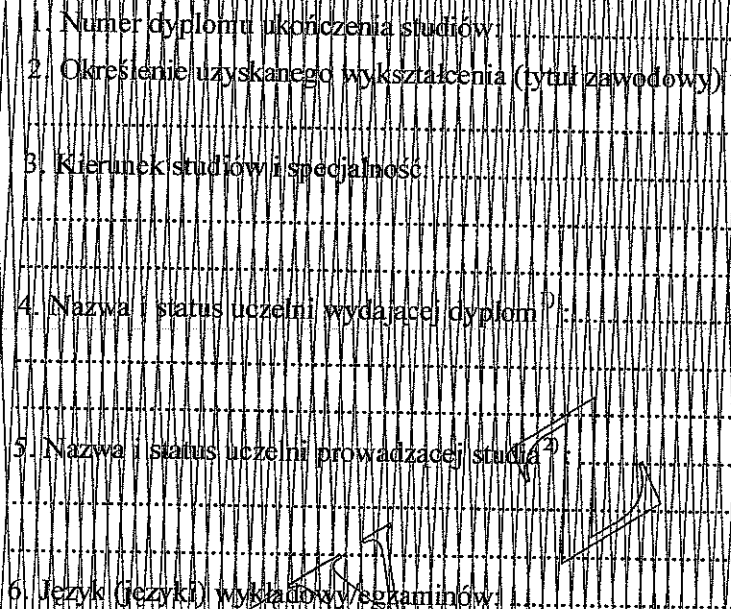 1. Numer dyplomu ukończenia studiów: ........................
2. Określenie uzyskanego wykształcenia (tytuł zawodowy)
................................................................
3. Kierunek studiów i specjalność: ................................
................................................................
................................................................
4. Nazwa i status uczelni wydającej dyplom 1) : ................
................................................................
................................................................
5. Nazwa i status uczelni prowadzącej studia 2) : ................
................................................................
................................................................
6. Język (języki) wykładowy/egzaminów: ........................